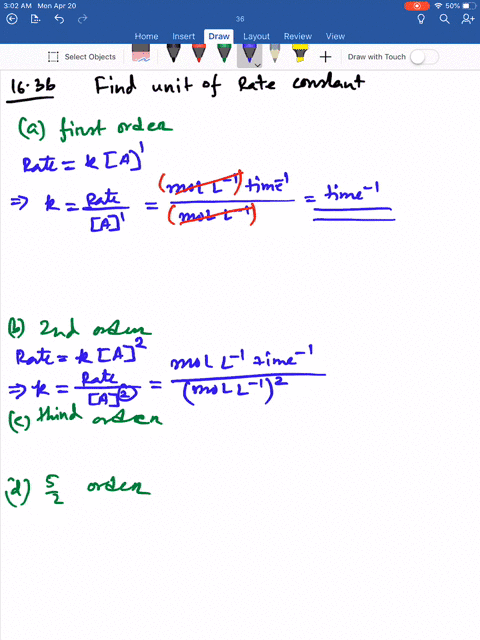 3:02 AM Mon Apr 20
50%
36
Home Insert Draw Layout Review View
Select Objects
Draw with Touch
16.36 Find unit of Rate constant
(a) first order
Rate = k [A]¹
⇒ k = Rate / [A]¹ = (mol L⁻¹) time⁻¹ / (mol L⁻¹) = time⁻¹
(b) 2nd order
Rate = k [A]²
⇒ k = Rate / [A]² = mol L⁻¹ time⁻¹ / (mol L⁻¹)²
(c) third order
(d) 5/2 order